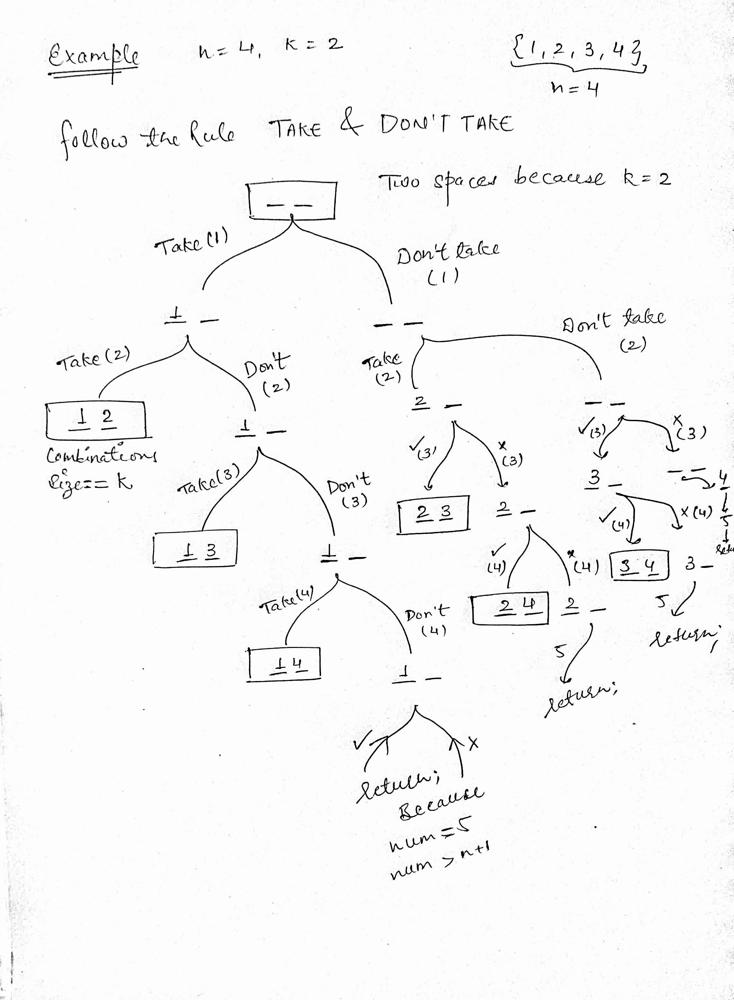 Example n = 4, k = 2 {1, 2, 3, 4},
n = 4
follow the Rule TAKE & DON'T TAKE
Two spaces because k = 2
_ _
Take (1) Don't take
(1)
1 _ _ _
Take (2) Don't
(2)
Take
(2)
Don't take
(2)
1 2
Combinations
size == k
1 _
2 _
_ _
Take (3) Don't
(3)
✓(3) x(3)
✓(3) x(3)
1 3
1 _
2 3
2 _
3 _
_ _ 4
5
Take (4) Don't
(4)
✓(4) x(4)
✓(4) x(4)
1 4
1 _
2 4
2 _
3 4
3 _
5
return;
5
return;
✓ x
return;
Because
num = 5
num > n+1